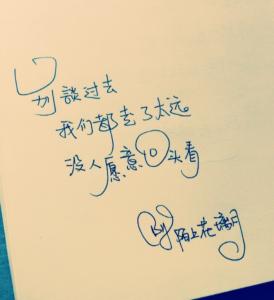 别談过去
我们都走了太远
没人愿意回头看
By 陌上花满月